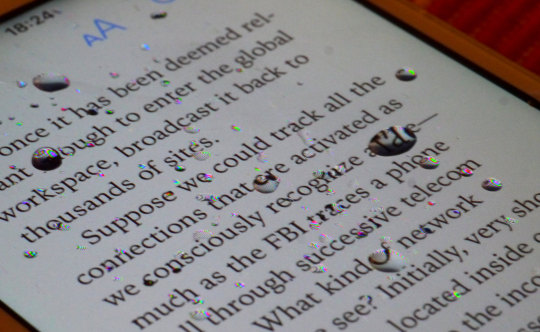 18:24
AA
once it has been deemed rel-
ant enough to enter the global
workspace, broadcast it back to
thousands of sites.
Suppose we could track all the
connections that are activated as
we consciously recognize a
much as the FBI traces a phone
ll through successive telecom
What kind network
see? Initially, very sho
located inside
the inco